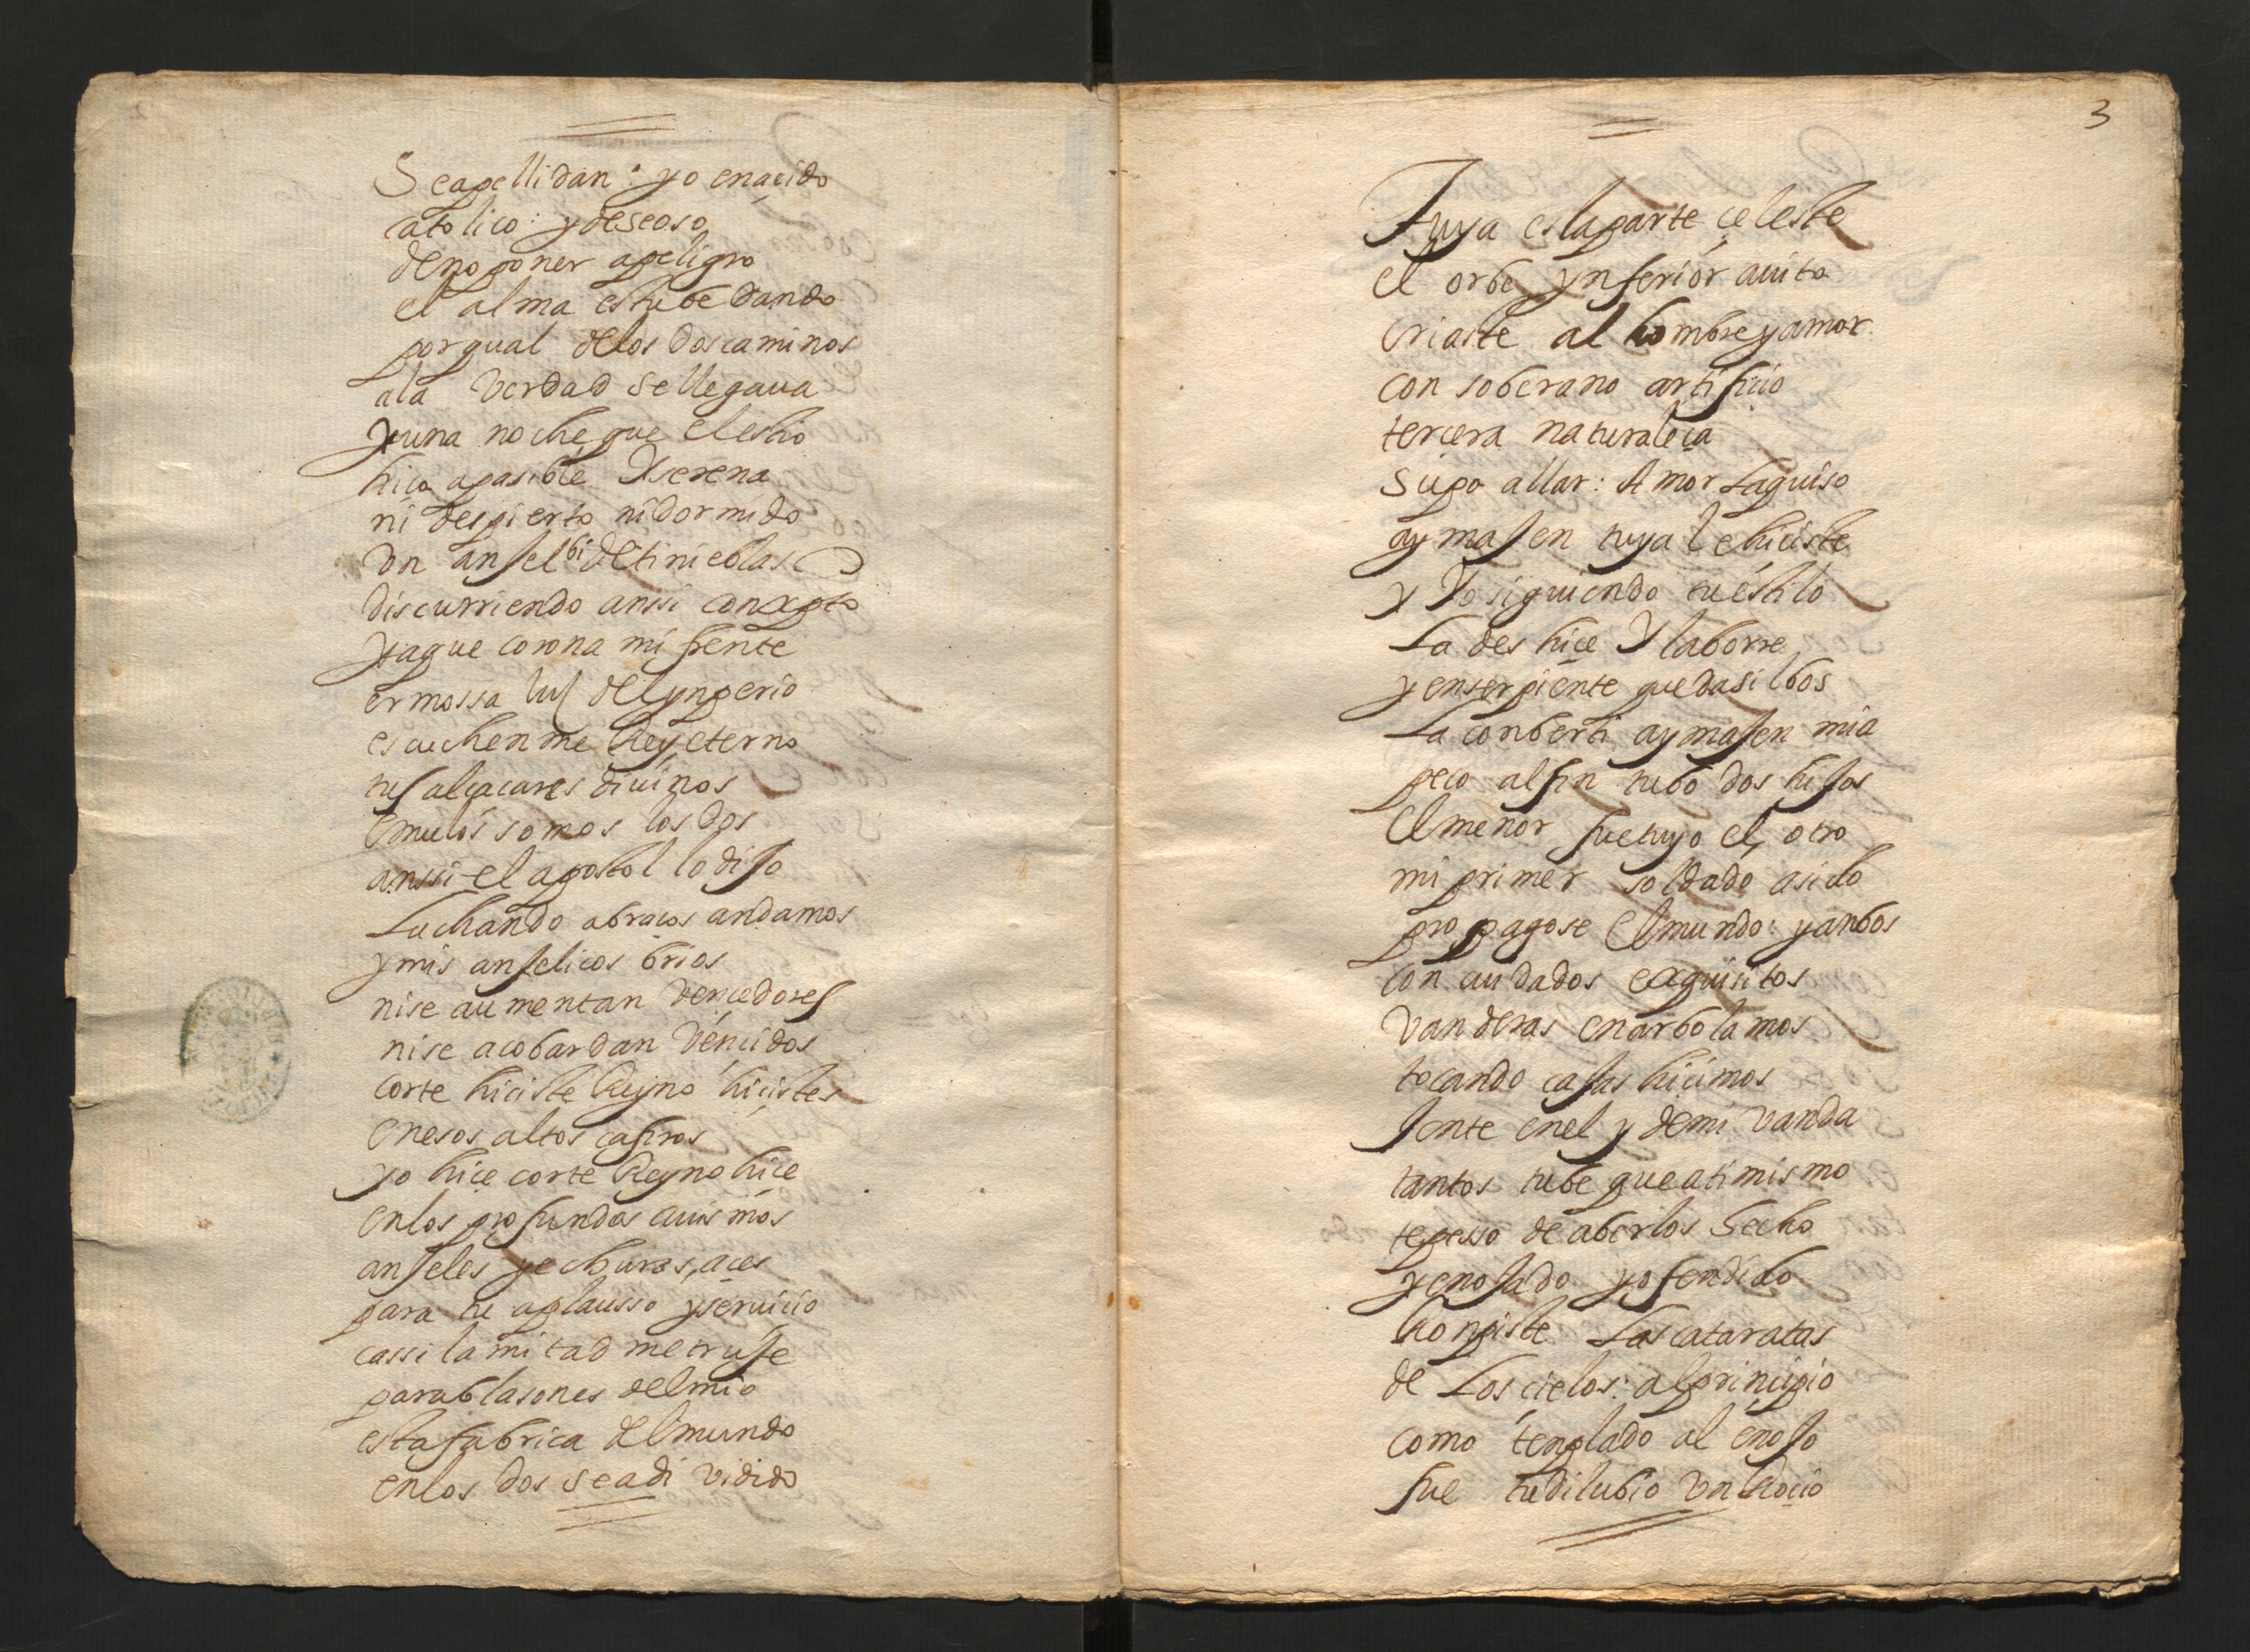 Se apellidan: yo e nacido
catolico: y deseoso
de no poner a peligro
el alma estube dando
por qual de los dos caminos
a la verdad se llegaua
y una noche que el estio
hiço apasible y serena
ni despierto ni dormido
vn anjel bi de tinieblas
discurriendo anssi con xpto
ya que corona mi frente
ermossa luz del ynperio
escuchenme Rey eterno
tus alcaçares diuinos
Emulos somos los dos
anssi el apostol lo dijo
Luchando a braços andamos
y mis anjelicos brios
ni se aumentan vençedores
ni se acobardan vencidos
corte hiciste Reyno hicistes
En esos altos çafiros
yo hiçe corte Reyno hice
en los profundos auismos
anjeles y echuras, açes
para tu aplausso y seruicio
cassi la mitad me truje
para blasones del mio
esta fabrica del mundo
en los dos se a diuidido
3
Tuya es la parte çeleste
el orbe ynferior auito
Criaste al hombre y amor
con soberano artificio
tercera naturaleça
supo allar: Amor La quiso
a ymajen tuya le hiciste
y Yo siguiendo tu estilo
La deshiçe Y la borre
y en serpiente que da silbos
La conberti a ymajen mia
peco al fin tubo dos hijos
El menor fue tuyo el otro
mi primer soldado a sido
propagose El mundo: y anbos
con cuidados exquisitos
Vanderas enarbolamos
tocando cajas hicimos
Jente en el y de mi vanda
tantos tube que a ti mismo
te pesso de aberlos hecho
y enojado y ofendido
Ronpiste Las cataratas
de Los cielos: al prinçipio
como tenplado al enojo
fue tu dilubio vn Roçio